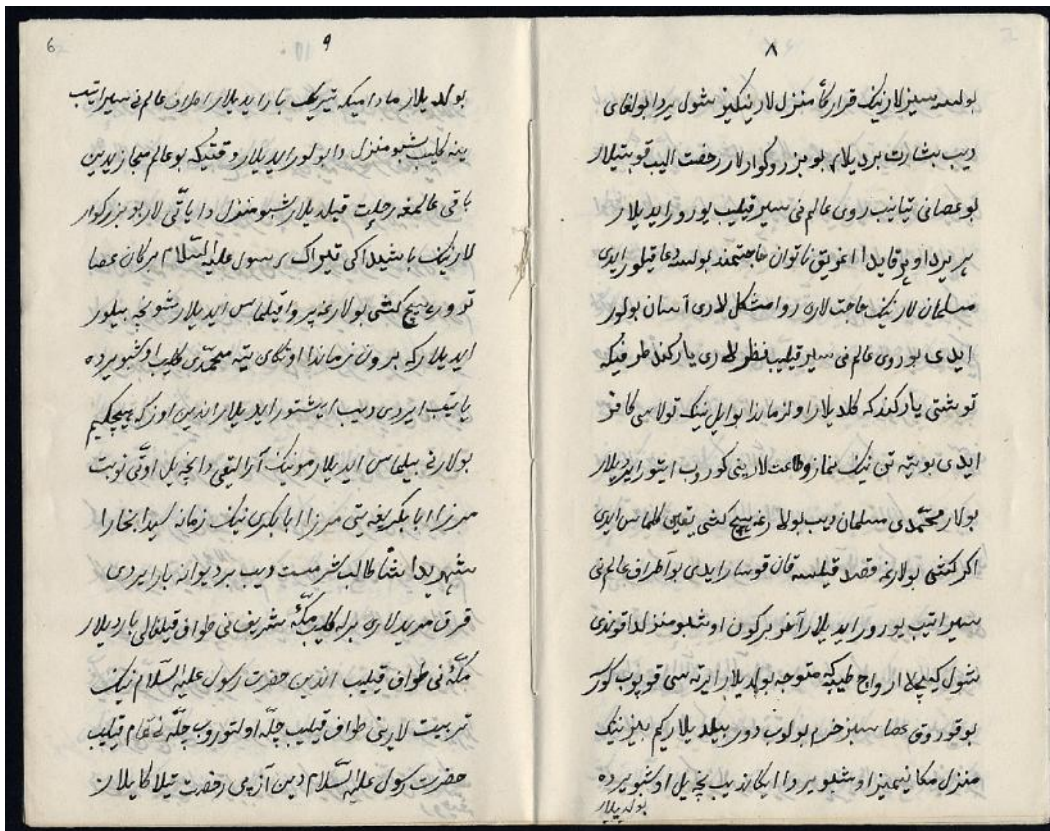 ٨
بولسه سیزلارنیک قرارکاه منزل لارینکیز شول یردا بولغای
دیب بشارت بردیلار بو بزرکوارلار رخصت الیب قویتیلار
بو عصانی تیانیب روی عالم نی سیر قیلیب یورور ایدیلار
هر یردا و هر قایدا اغریق ناتوان حاجتمند بولسه دعا قیلور ایدی
مسلمان لارنیک حاجت لاری روا مشکل لاری آسان بولور
ایدی بو روی عالم نی سیر قیلیب نظر لاری یارکند طرفیکه
توشتی یارکندکه کلدیلار اول زماندا بو ایل نیک تولاسی کافر
ایدی بو یته تن نیک نماز و طاعت لارینی کوروب ایتور ایردیلار
بولار محمدی مسلمان دیب بولارغه هیچ کشی یقین کلماس ایدی
اکر کشی بولارغه قصد قیلسه قان قوسار ایدی بو اطراف عالم نی
سیر ایتیب یورور ایدیلار آخر بر کون اوشبو منزلدا قوندی
شول کیچه لا ارواح طیبه که متوجه بولدیلار ایرته سی قوپوب کورسه
بو قوروق عصا سبز خرم بولوب دور بیلدیلار کیم بیزنیک
منزل مکانیمیز اوشبو یردا ایکان دیب نچه یل اوشبو یرده
بولدیلار
٩
6
بولدیلار مادامیکه تیریک بار ایدیلار اطراف عالم نی سیر ایتیب
ینه کلیب شبو منزل دا بولور ایدیلار وقتیکه بو عالم مجازیدین
باقی عالمغه رحلت قیلدیلار شبو منزل دا یاتی لار بو بزرکوار
لارنیک باشیداکی تیراک رسول علیه السلام برکان عصا
تورور هیچ کشی بولارغه پروا قیلماس ایدیلار شونچه بیلور
ایدیلارکه برون زماندا اوتکان یته محمدی کلیب اوشبو یرده
یاتیب ایردی دیب ایشتور ایدیلار اندین اوزکه هیچکیم
بولارنی بیلماس ایدیلار مونیک آرالیقی دا نچه یل اوتی نوبت
مرزا ابابکریغه یتی مرزا ابابکری نیک زمانه سیدا بخارا
شهریدا شاه طالب سرمست دیب بر دیوانه بار ایردی
قرق مریدلاری برله کلیب مکه شریف نی طواف قیلغالی باردیلار
مکه نی طواف قیلیب اندین حضرت رسول علیه السلام نیک
تربیت لارینی طواف قیلیب چله اولتوروب چله نی تمام قیلیب
حضرت رسول علیه السلام دین رخصت تیلاکایلار